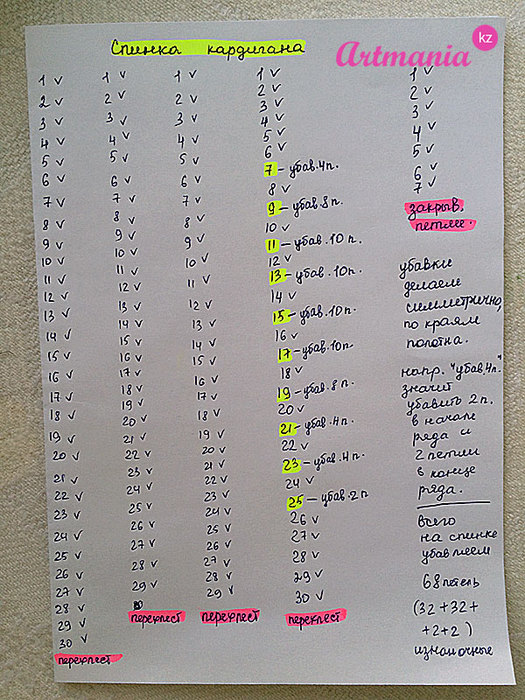 Спинка кардигана
Artmania kz
1 v
2 v
3 v
4 v
5 v
6 v
7 v
8 v
9 v
10 v
11 v
12 v
13 v
14 v
15 v
16 v
17 v
18 v
19 v
20 v
21 v
22 v
23 v
24 v
25 v
26 v
27 v
28 v
29 v
30 v
перехлест
1 v
2 v
3 v
4 v
5 v
6 v
7 v
8 v
9 v
10 v
11 v
12 v
13 v
14 v
15 v
16 v
17 v
18 v
19 v
20 v
21 v
22 v
23 v
24 v
25 v
26 v
27 v
28 v
29 v
перехлест
1 v
2 v
3 v
4 v
5 v
6 v
7 v
8 v
9 v
10 v
11 v
12 v
13 v
14 v
15 v
16 v
17 v
18 v
19 v
20 v
21 v
22 v
23 v
24 v
25 v
26 v
27 v
28 v
29 v
перехлест
1 v
2 v
3 v
4 v
5 v
6 v
7 – убав. 4 п.
8 v
9 – убав. 8 п.
10 v
11 – убав. 10 п.
12 v
13 – убав. 10 п.
14 v
15 – убав. 10 п.
16 v
17 – убав. 10 п.
18 v
19 – убав. 8 п.
20 v
21 – убав. 4 п.
22 v
23 – убав. 4 п.
24 v
25 – убав. 2 п
26 v
27 v
28 v
29 v
30 v
перехлест
1 v
2 v
3 v
4 v
5 v
6 v
7 v
закрыв.
петлие.
убавки
делаем
симметрично,
по краям
полотна.
напр. "убав. 4 п."
значит
убавить 2 п.
в начале
ряда и
2 петли
в конце
ряда.
всего
на спинке
убавляем
68 петель
(32 + 32 +
+ 2 + 2)
изнаночные